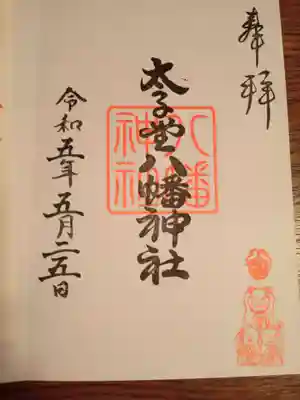 奉拝
太子堂八幡神社
八幡神社
令和五年五月二五日